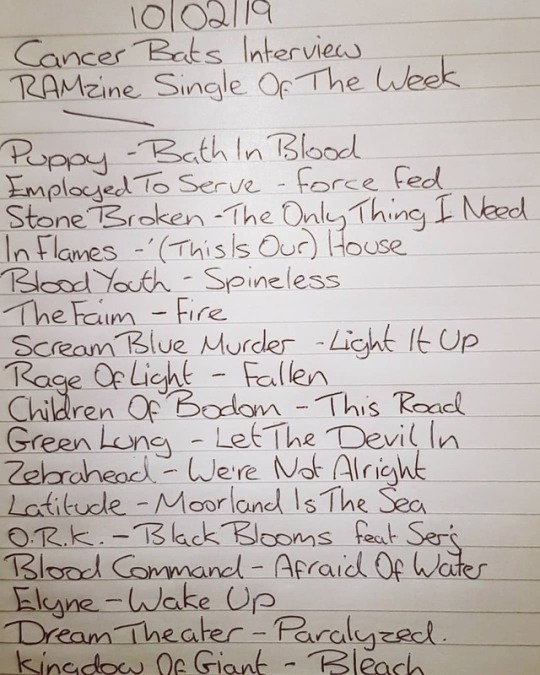 10/02/19
Cancer Bats Interview
RAMzine Single Of The Week
Puppy - Bath In Blood
Employed To Serve - Force Fed
Stone Broken - The Only Thing I Need
In Flames - '(This Is Our) House
Blood Youth - Spineless
The Faim - Fire
Scream Blue Murder - Light It Up
Rage Of Light - Fallen
Children Of Bodom - This Road
Green Lung - Let The Devil In
Zebrahead - We're Not Alright
Latitude - Moorland Is The Sea
O.R.k. - Black Blooms feat Serj
Blood Command - Afraid Of Water
Elyne - Wake Up
Dream Theater - Paralyzed.
Kingdow Of Giant - Bleach